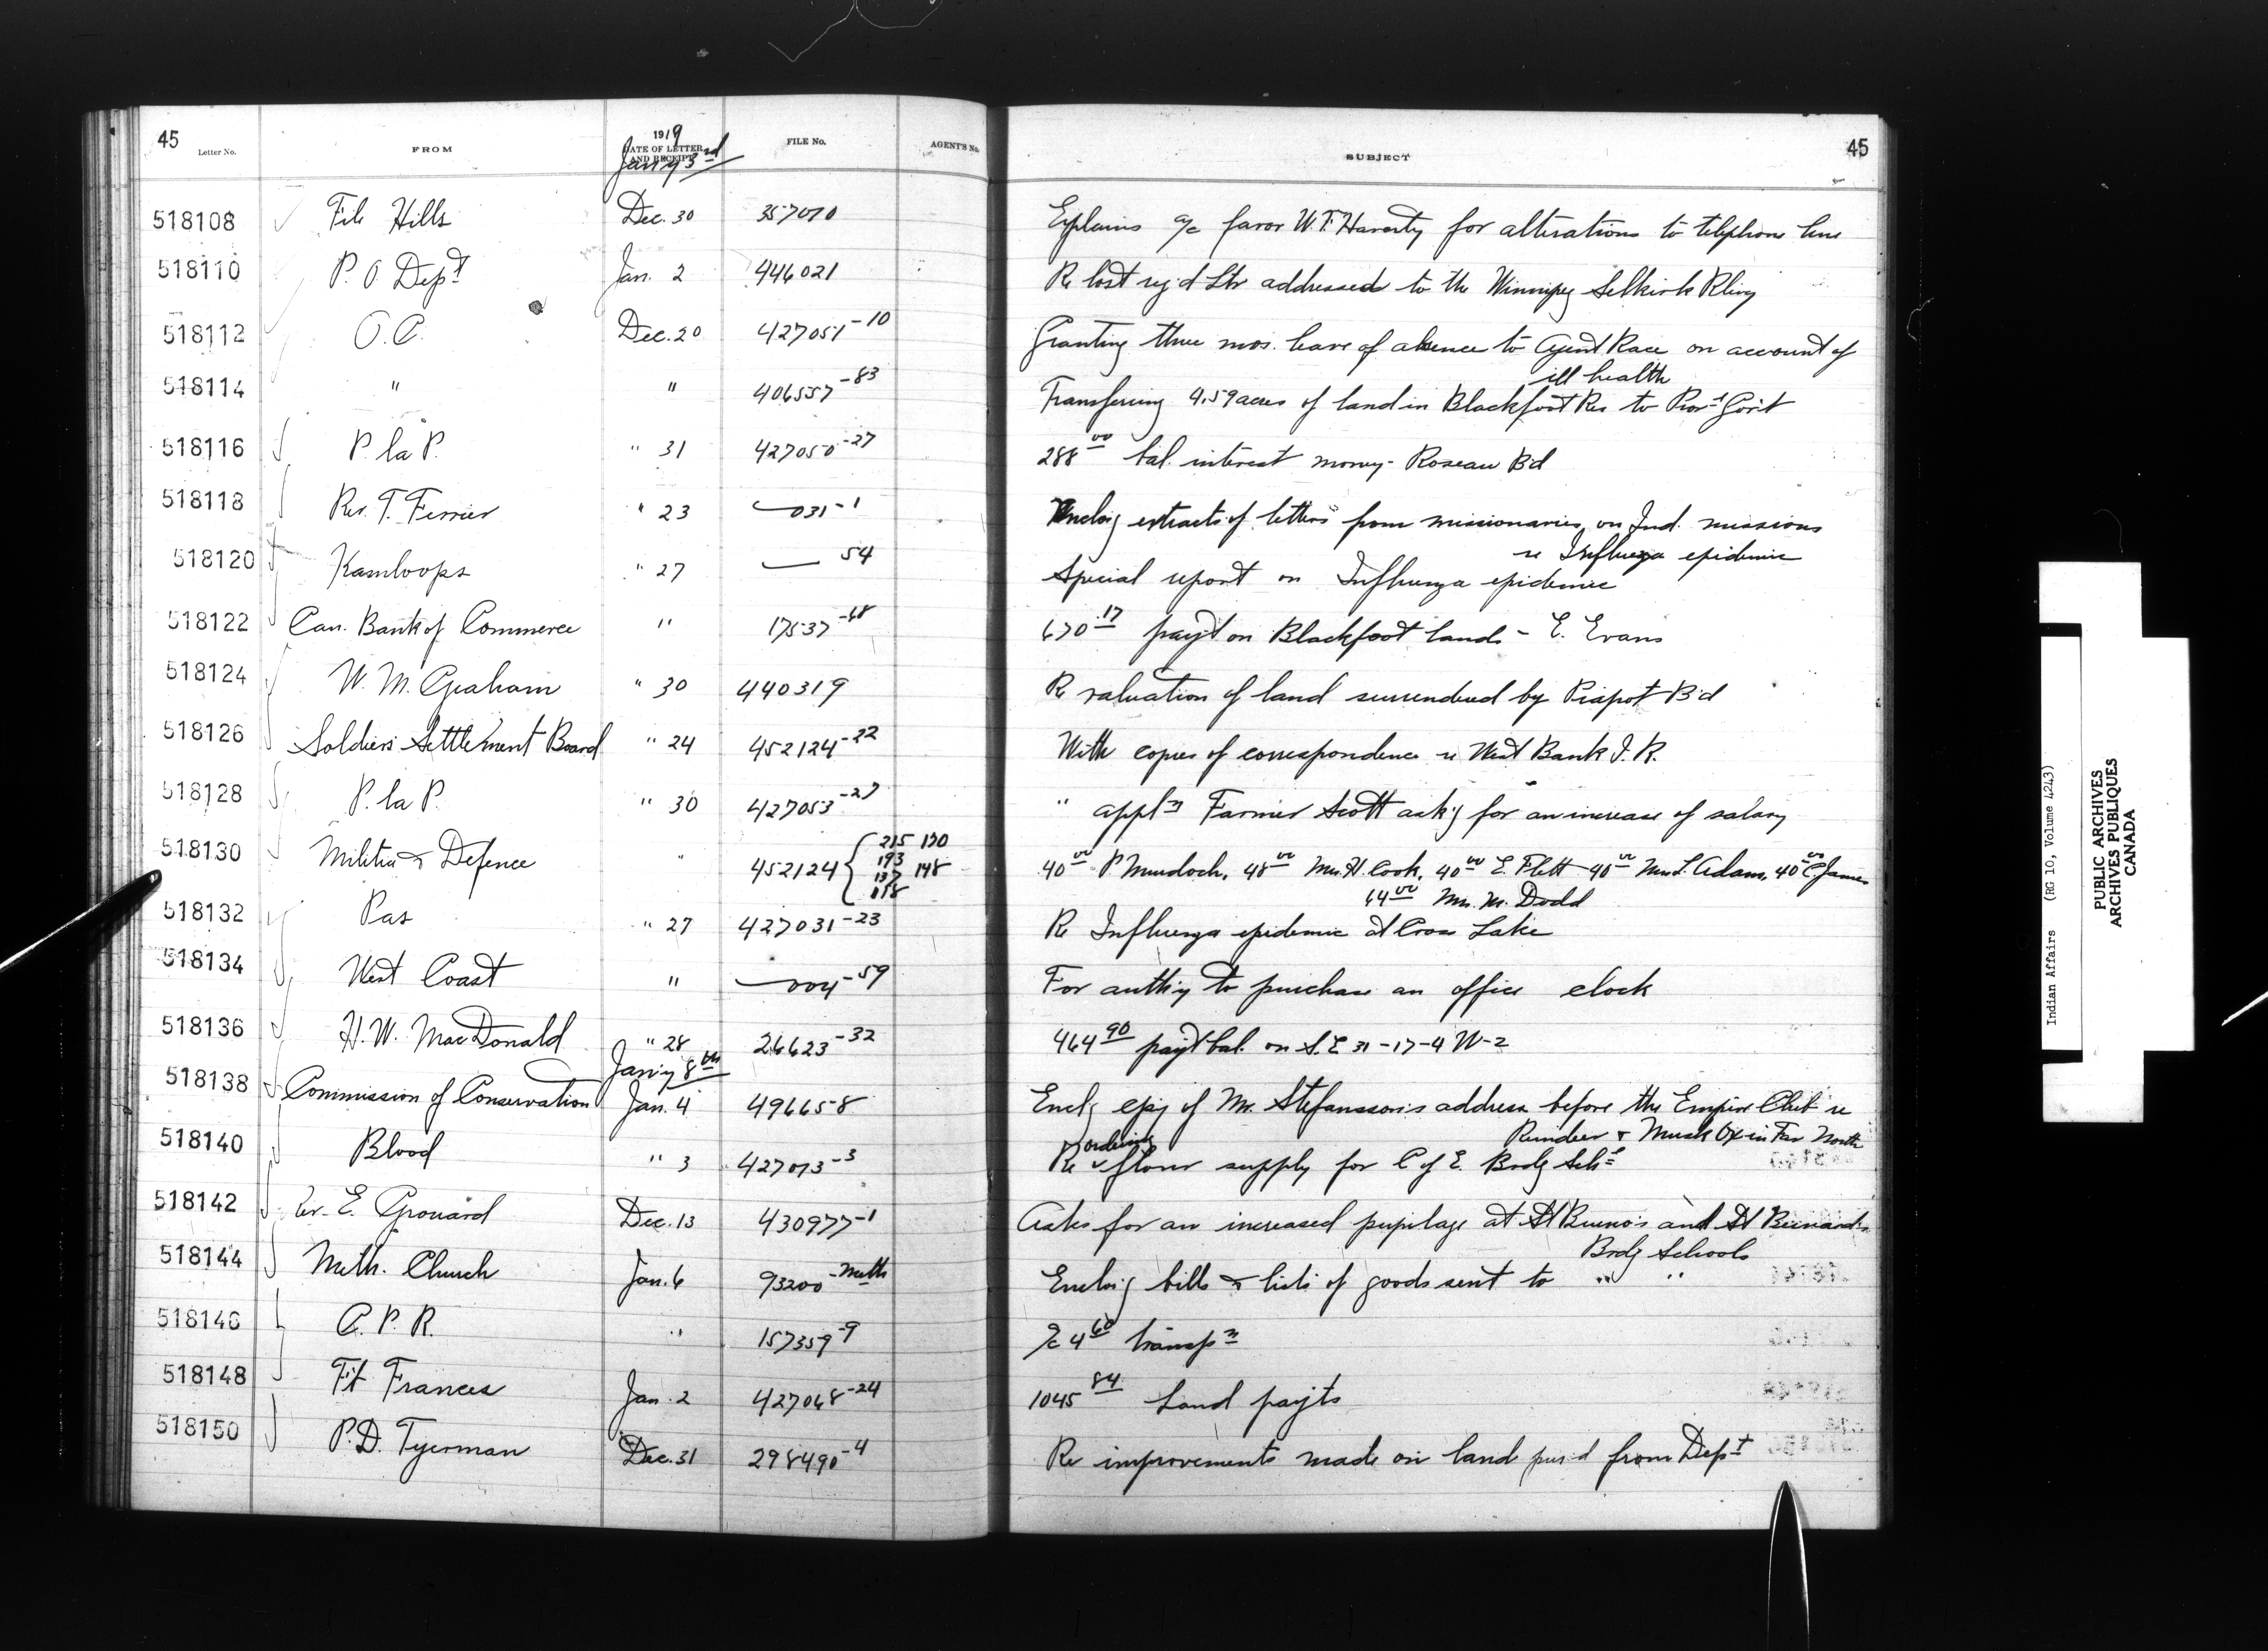 45 Letter No. FROM 1919 DATE OF LETTER AND RECEIPT FILE No. AGENT'S No. SUBJECT 45
Jan'y 3rd
518108 File Hills Dec. 30 357010 Explains a/c favor W.F. Haverty for alterations to telephone line
518110 P. O. Dept Jan. 2 446021 Re lost reg'd Ltr addressed to the Winnipeg Selkirk Rlwy
518112 O.C. Dec. 20 427051-10 Granting three mos. leave of absence to Agent Race on account of
ill health
518114 " " 406557-83 Transferring 4.59 acres of land in Blackfoot Res to Prov'l Gov't
518116 P. la P. " 31 427050-27 288 00 bal. interest money - Roseau B'd
518118 Rev. T. Ferrier " 23 — 031-1 Enclos'g extracts of letters from missionaries on Ind. missions
re Influenza epidemic
518120 Kamloops " 27 — 54 Special report on Influenza epidemic
518122 Can. Bank of Commerce " 17537-68 670.17 pay't on Blackfoot lands - E. Evans
518124 W. M. Graham " 30 440319 Re valuation of land surrendered by Piapot B'd
518126 Soldiers' Settlement Board " 24 452124-22 With copies of correspondence re West Bank I. R.
518128 P. la P. " 30 427053-27 " appln Farmer Scott ask'g for an increase of salary
518130 Militia & Defence " 452124 { 215 170 193 148 137 118 40 00 P Murdoch, 48 00 Mrs. H. Cook, 40 00 E. Flett 40 00 Mrs L. Adam, 40 00 C. James
64 00 Mrs. M. Dodd
518132 Pas " 27 427031-23 Re Influenza epidemic at Cross Lake
518134 West Coast " — 004-59 For auth'y to purchase an office clock
518136 H. W. MacDonald " 28 26623-32 464 90 pay't bal. on S.E 31-17-4 W-2
Jan'y 8th
518138 Commission of Conservation Jan. 4 496658 Encl'g copy of Mr. Stefansson's address before the Empire Club re
Reindeer & Musk Ox in Far North
518140 Blood " 3 427073-3 Re ordering flour supply for C of E. Brdg Schl
518142 Rev. E. Grouard Dec. 13 430977-1 Asks for an increased pupilage at St Bruno's and St Bernard's
Brdg Schools
518144 Meth. Church Jan. 6 93200-Meth Enclos'g bills & lists of goods sent to " "
518146 C. P. R. " 157359-9 a/c 4 60 transpn
518148 Ft Frances Jan. 2 427068-24 1045 84 Land pay'ts
518150 P. D. Tyerman Dec. 31 298490-4 Re improvements made on land pur'd from Dept
Indian Affairs (RG 10, Volume 4243)
PUBLIC ARCHIVES
ARCHIVES PUBLIQUES
CANADA